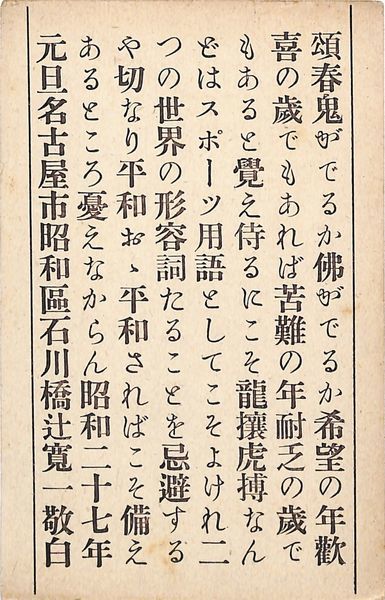 頌春鬼がでるか佛がでるか希望の年歡
喜の歲でもあれば苦難の年耐乏の歲で
もあると覺え侍るにこそ龍攘虎搏なん
どはスポーツ用語としてこそよけれ二
つの世界の形容詞たることを忌避する
や切なり平和おゝ平和さればこそ備え
あるところ憂えなからん昭和二十七年
元旦名古屋市昭和區石川橋辻寬一敬白